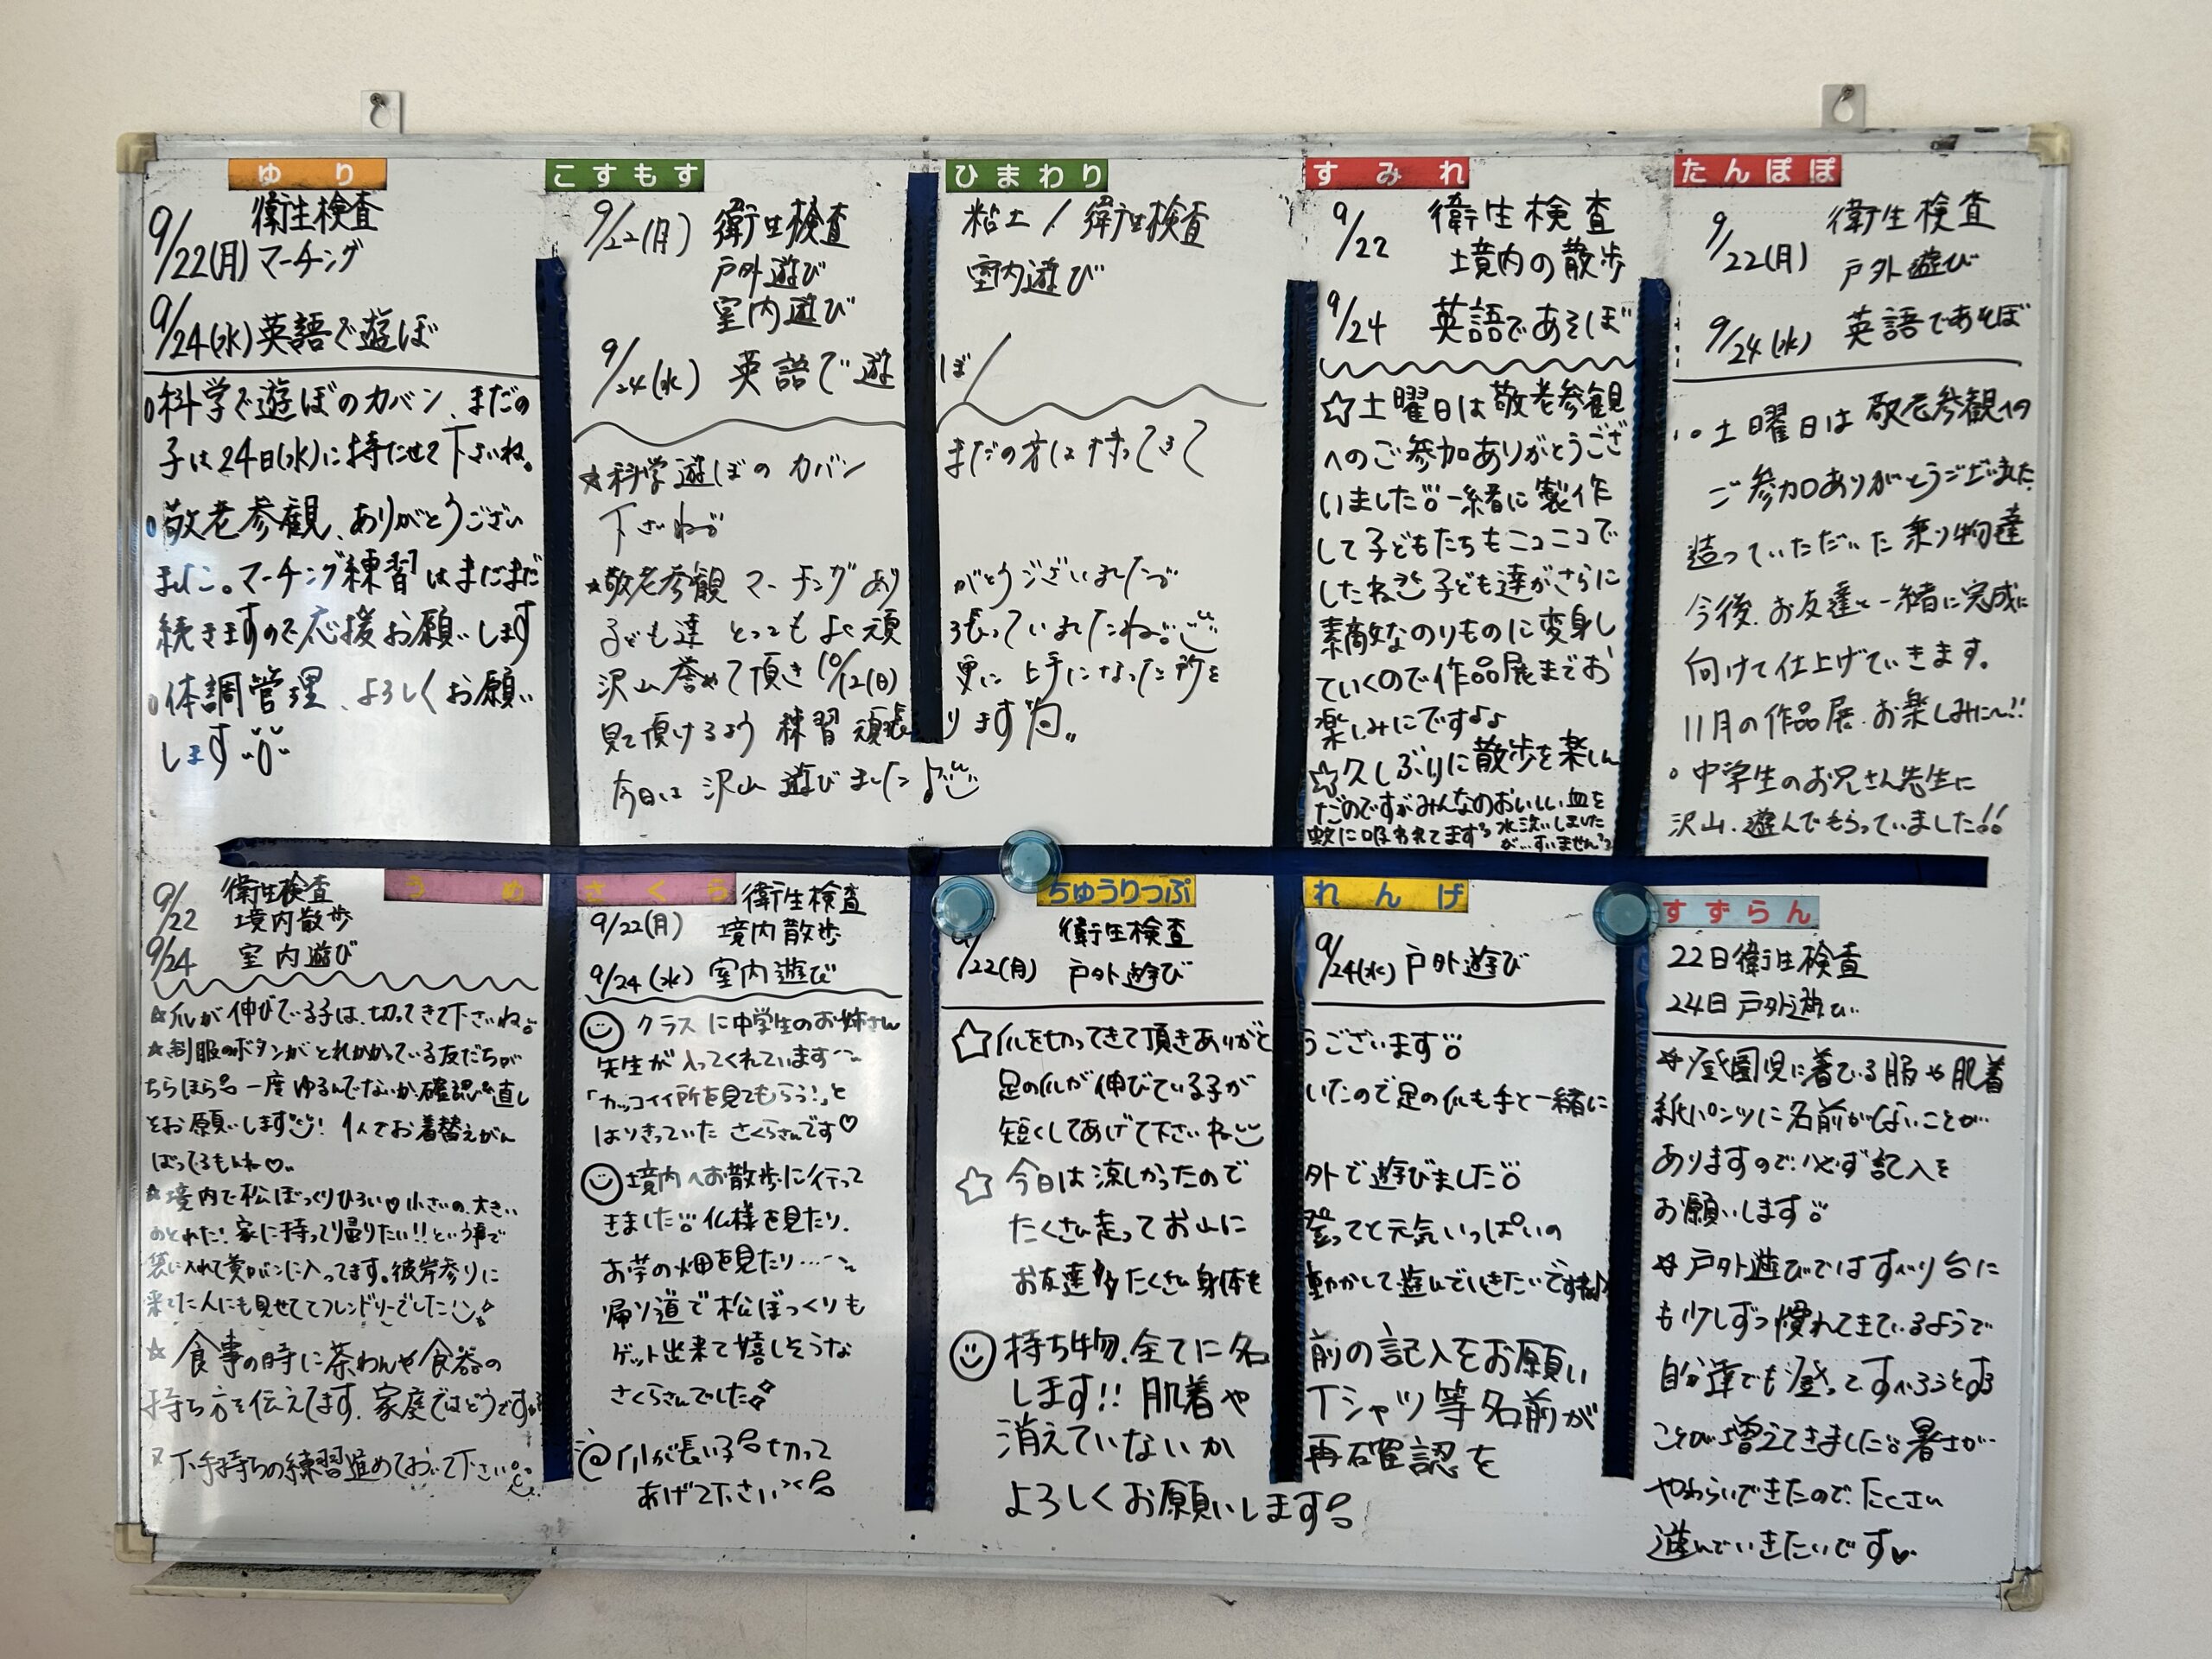 ゆり
衛生検査
9/22(月) マーチング
9/24(水) 英語で遊ぼ
○科学で遊ぼのカバン、まだの
子は24日(水)に持たせて下さいね。
○敬老参観、ありがとうござい
ました。マーチング練習はまだまだ
続きますので応援お願いします
○体調管理、よろしくお願い
します
こすもす
9/22(月) 衛生検査
戸外遊び
室内遊び
9/24(水) 英語で遊
ひまわり
粘土/衛生検査
室内遊び
ぼ/
☆科学遊ぼのカバン まだの方は持ってきて
下さいね
☆敬老参観 マーチングあり がとうございました
子ども達 とってもよく頑 張っていましたね
沢山誉めて頂き 10/12(日) 更に上手になった所を
見て頂けるよう 練習頑張 ります
今日は 沢山 遊びました♪
すみれ
9/22 衛生検査
境内の散歩
9/24 英語であそぼ
☆土曜日は敬老参観
へのご参加ありがとうござ
いました 一緒に製作
して子どもたちもニコニコで
したね 子ども達がさらに
素敵なのりものに変身し
ていくので作品展までお
楽しみにですよ
☆久しぶりに散歩を楽しん
だのですがみんなのおいしい血を
蚊に吸われてます 水洗いしました
が…すいません
たんぽぽ
9/22(月) 衛生検査
戸外遊び
9/24(水) 英語であそぼ
○土曜日は敬老参観への
ご参加ありがとうございました
造っていただいた乗り物達
今後、お友達と一緒に完成に
向けて仕上げていきます。
11月の作品展、お楽しみに〜!!
○中学生のお兄さん先生に
沢山、遊んでもらっていました!!
うめ
9/22 衛生検査
境内散歩
9/24 室内遊び
☆爪が伸びている子は、切ってきて下さいね
☆制服のボタンがとれかかっている友だちが
ちらほら 一度ゆるんでないか確認&直し
をお願いします! 1人でお着替えがん
ばってるもんね♡
☆境内で松ぼっくりひろい♡小さいの、大きい
のとれた!家に持って帰りたい!!という事で
袋に入れて黄カバンに入ってます。彼岸参りに
来てた人にも見せててフレンドリーでした
☆食事の時に茶わんや食器の
持ち方を伝えてます。家庭ではどうですか
下手持ちの練習進めておいて下さい
さくら
衛生検査
9/22(月) 境内散歩
9/24(水) 室内遊び
クラスに中学生のお姉さん
先生が入ってくれています
「カッコイイ所を見てもらう!」と
はりきっていた さくらさんです♡
境内へお散歩に行って
きました 仏様を見たり、
お芋の畑を見たり…
帰り道で松ぼっくりも
ゲット出来て嬉しそうな
さくらさんでした
爪が長い子 切って
あげて下さい
ちゅうりっぷ
衛生検査
9/22(月) 戸外遊び
れんげ
9/24(水) 戸外遊び
☆爪を切ってきて頂きありがと うございます
足の爪が伸びている子が いたので足の爪も手と一緒に
短くしてあげて下さいね
☆今日は涼しかったので 外で遊びました
たくさん走ってお山に 登ってと元気いっぱいの
お友達 たくさん身体を 動かして遊んでいきたいです
持ち物、全てに名 前の記入をお願い
します!! 肌着や Tシャツ等名前が
消えていないか 再確認を
よろしくお願いします
すずらん
22日衛生検査
24日戸外遊び
☆登園児に着ている服や肌着
紙パンツに名前がないことが
ありますので、必ず記入を
お願いします
☆戸外遊びではすべり台に
も少しずつ慣れてきているようで
自分達でも登って、すべろうとする
ことが増えてきました 暑さが
やわらいできたので、たくさん
遊んでいきたいです